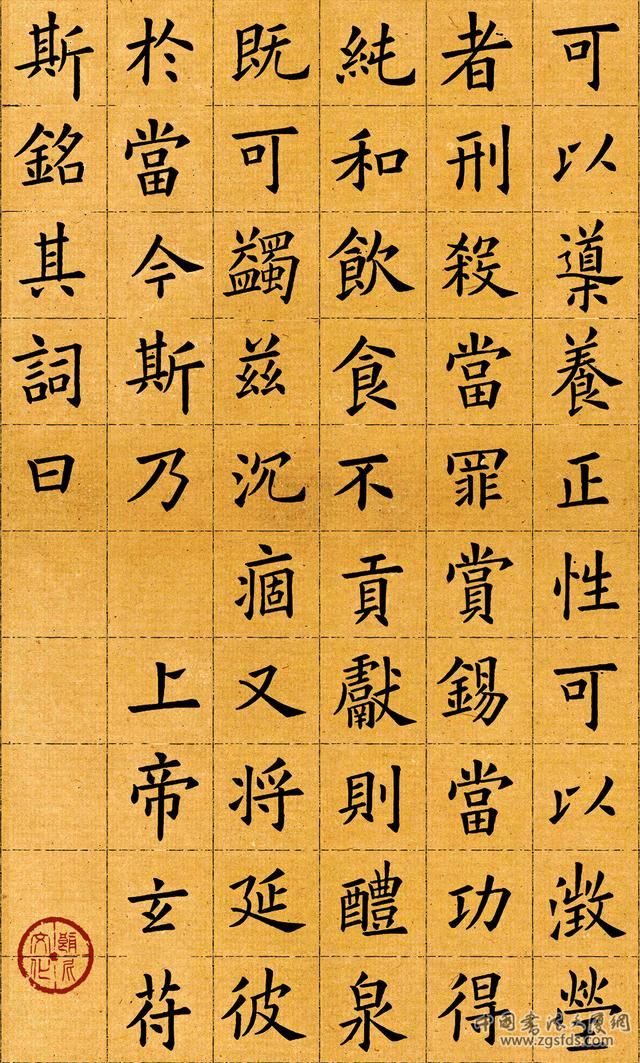 可以導養正性可以澂瑩
者刑殺當罪賞錫當功得
純和飲食不貢獻則醴泉
既可蠲兹沉痼又将延彼
於當今斯乃 上帝玄苻
斯銘其詞曰
中国書法大厦網
www.zgsfds.com